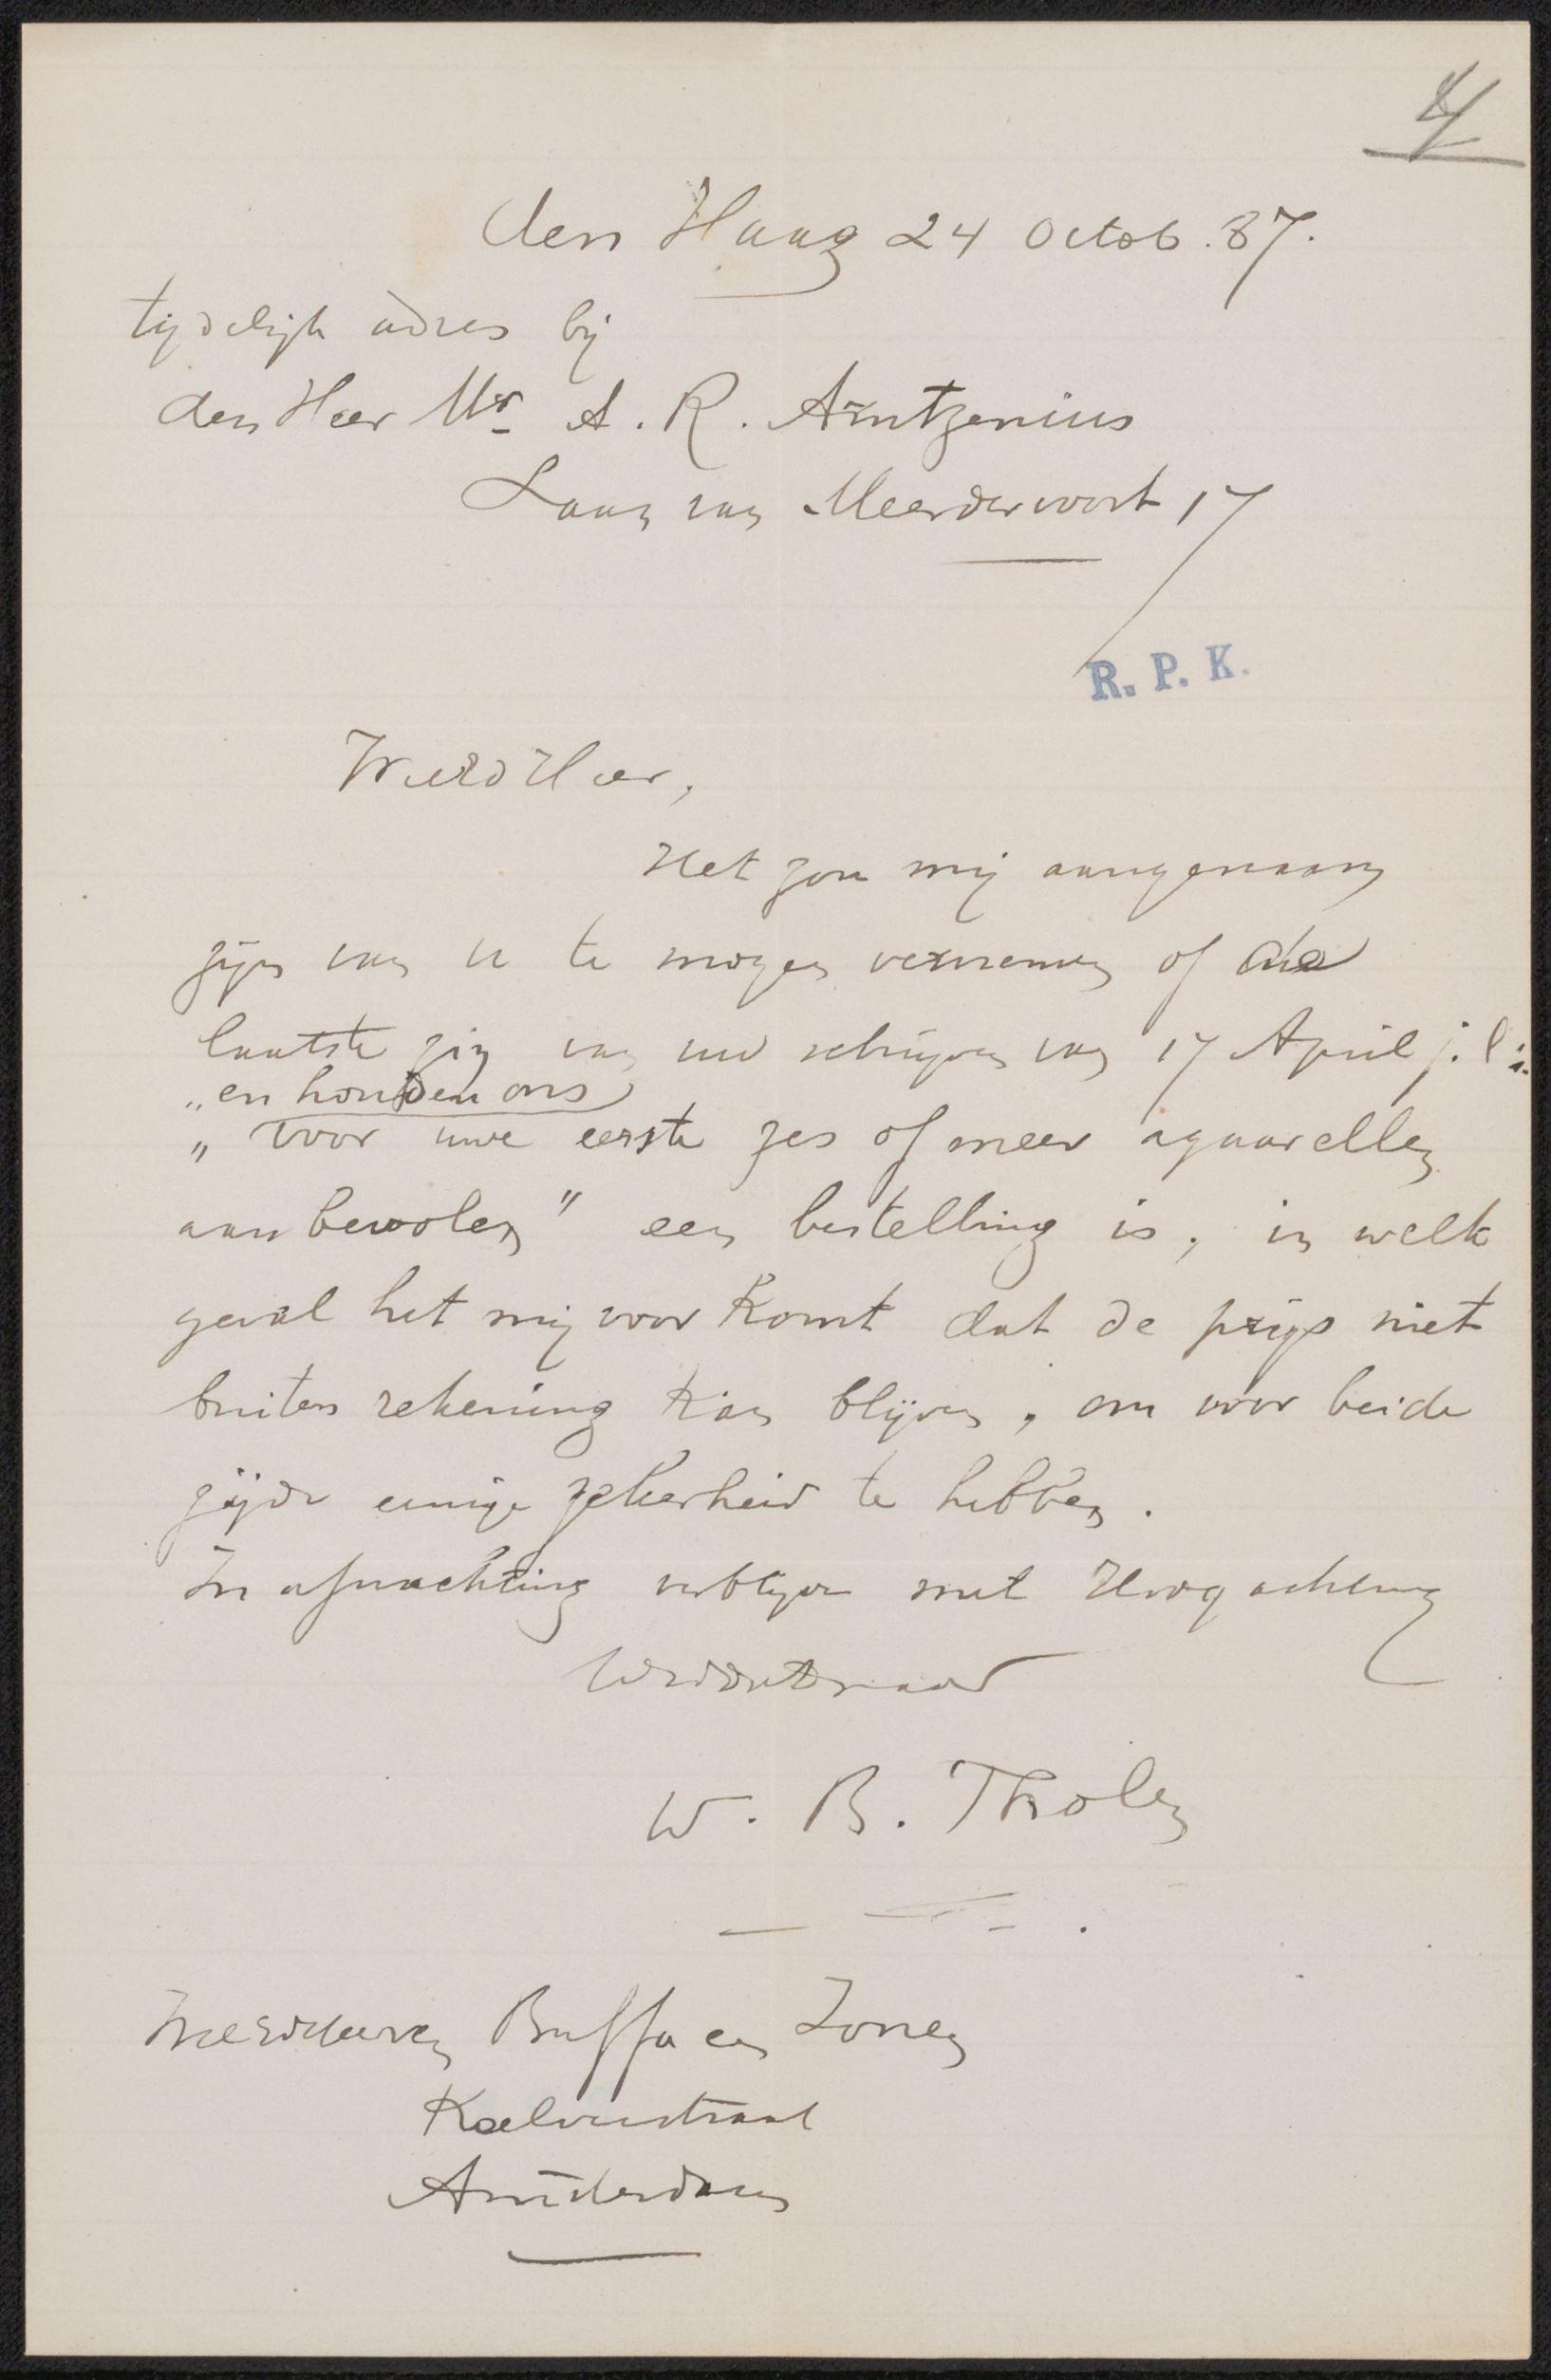 4
den Haag 24 Octob. 87.
tijdelijk adres bij
den Heer Mr A. R. Arntzenius
Laan van Meerdervoort 17
R. P. K.
Waarde Heer,
Het zou mij aangenaam
zijn van u te mogen vernemen of de
laatste zin van uw schrijven van 17 April j.l:
„en houden ons
„ voor uwe eerste zes of meer aquarellen
aanbevolen" een bestelling is, in welk
geval het mij voorkomt dat de prijs niet
buiten rekening kan blijven, om voor beide
zijde eenige zekerheid te hebben.
In afwachting verblijve met Hoogachting
UwEddtdienaar
W. B. Tholen
Weledheeren Buffa en Zonen
Kalverstraat
Amsterdam